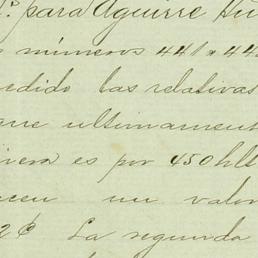 para Aguirre
numeros 441 a 44
edido las relativas
que ultimament
es por 450 hll
un valor
2¢ La segunda